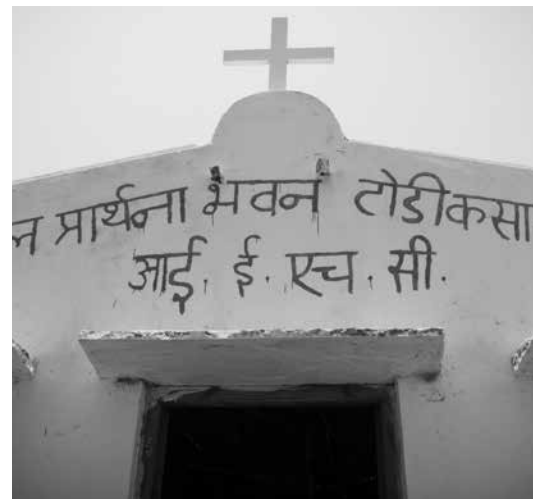 प्रार्थना भवन टोडीकसा
आई. ई. एच. सी.